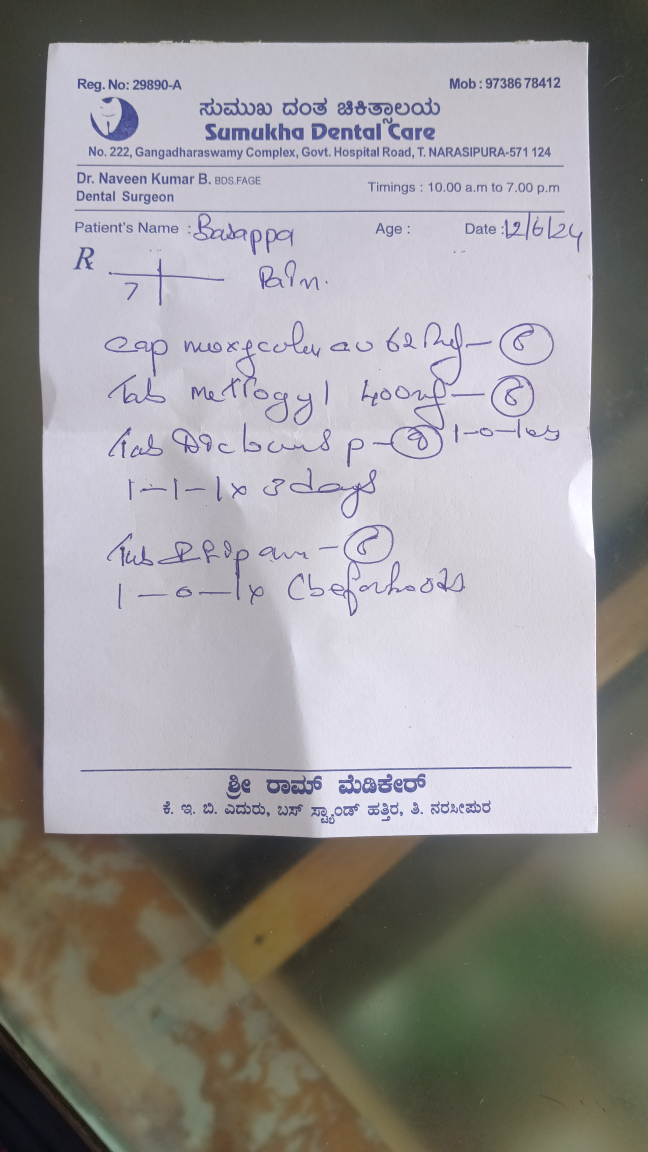 Reg. No: 29890-A
Mob : 97386 78412
ಸುಮುಖ ದಂತ ಚಿಕಿತ್ಸಾಲಯ
Sumukha Dental Care
No. 222, Gangadharaswamy Complex, Govt. Hospital Road, T. NARASIPURA-571 124
Dr. Naveen Kumar B. BDS.FAGE
Dental Surgeon
Timings : 10.00 a.m to 7.00 p.m
Patient's Name : Basappa Age : Date : 12/6/24
R
7 Pain.
Cap 625mg - 6
Tab metrogyl 400mg - 6
Tab p - 9 1-0-1
1-1-1 x 3 days
Tab - 6
1-0-1 x
ಶ್ರೀ ರಾಮ್ ಮೆಡಿಕೇರ್
ಕೆ. ಇ. ಬಿ. ಎದುರು, ಬಸ್ ಸ್ಟ್ಯಾಂಡ್ ಹತ್ತಿರ, ತಿ. ನರಸೀಪುರ